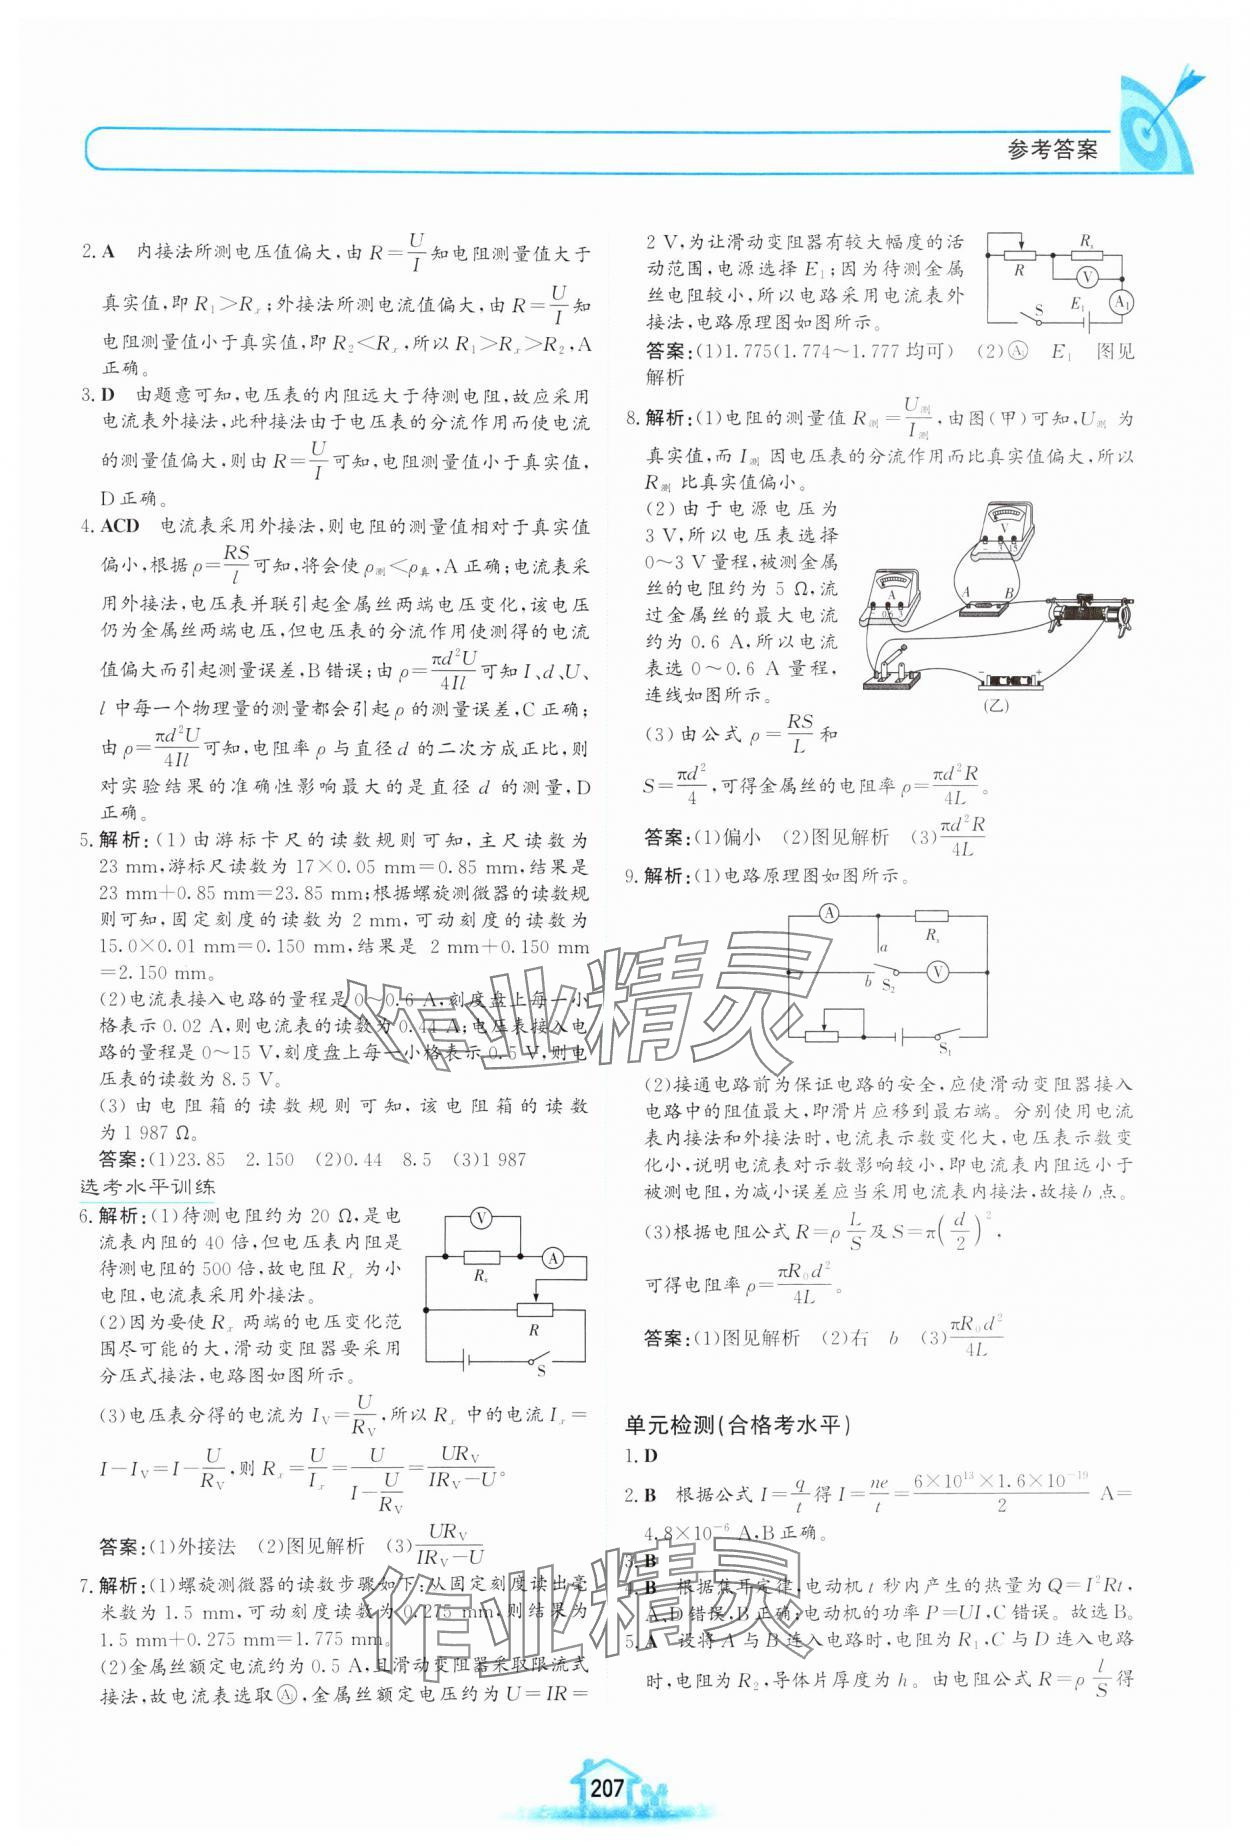 参考答案
2. A 内接法所测电压值偏大,由 R=U/I 知电阻测量值大于
真实值,即 R₁>Rₓ;外接法所测电流值偏大,由 R=U/I 知
电阻测量值小于真实值,即 R₂<Rₓ,所以 R₁>Rₓ>R₂,A
正确。
3. D 由题意可知,电压表的内阻远大于待测电阻,故应采用
电流表外接法,此种接法由于电压表的分流作用而使电流
的测量值偏大,则由 R=U/I 可知,电阻测量值小于真实值,
D正确。
4. ACD 电流表采用外接法,则电阻的测量值相对于真实值
偏小,根据 ρ=RS/l 可知,将会使 ρ测<ρ真,A正确;电流表采
用外接法,电压表并联引起金属丝两端电压变化,该电压
仍为金属丝两端电压,但电压表的分流作用使测得的电流
值偏大而引起测量误差,B错误;由 ρ=πd²U/4Il 可知 I、d、U、
l 中每一个物理量的测量都会引起 ρ 的测量误差,C正确;
由 ρ=πd²U/4Il 可知,电阻率 ρ 与直径 d 的二次方成正比,则
对实验结果的准确性影响最大的是直径 d 的测量,D
正确。
5. 解析:(1)由游标卡尺的读数规则可知,主尺读数为
23 mm,游标尺读数为 17×0.05 mm=0.85 mm,结果是
23 mm+0.85 mm=23.85 mm;根据螺旋测微器的读数规
则可知,固定刻度的读数为 2 mm,可动刻度的读数为
15.0×0.01 mm=0.150 mm,结果是 2 mm+0.150 mm
=2.150 mm。
(2)电流表接入电路的量程是 0~0.6 A,刻度盘上每一小
格表示 0.02 A,则电流表的读数为 0.44 A;电压表接入电
路的量程是 0~15 V,刻度盘上每一小格表示 0.5 V,则电
压表的读数为 8.5 V。
(3)由电阻箱的读数规则可知,该电阻箱的读数
为 1 987 Ω。
答案:(1)23.85 2.150 (2)0.44 8.5 (3)1 987
选考水平训练
6. 解析:(1)待测电阻约为 20 Ω,是电
流表内阻的 40 倍,但电压表内阻是
待测电阻的 500 倍,故电阻 Rₓ 为小
电阻,电流表采用外接法。
(2)因为要使 Rₓ 两端的电压变化范
围尽可能的大,滑动变阻器要采用
分压式接法,电路图如图所示。
V
A
Rₓ
R
S
(3)电压表分得的电流为 I_V=U/R_V,所以 Rₓ 中的电流 Iₓ=
I-I_V=I-U/R_V,则 Rₓ=U/Iₓ=U/(I-U/R_V)=UR_V/(IR_V-U)。
答案:(1)外接法 (2)图见解析 (3)UR_V/(IR_V-U)
7. 解析:(1)螺旋测微器的读数步骤如下:从固定刻度读出毫
米数为 1.5 mm,可动刻度的读数为 0.275 mm,则结果为
1.5 mm+0.275 mm=1.775 mm。
(2)金属丝额定电流约为 0.5 A,且滑动变阻器采取限流式
接法,故电流表选取Ⓐ₁,金属丝额定电压约为 U=IR=
2 V,为让滑动变阻器有较大幅度的活
动范围,电源选择 E₁;因为待测金属
丝电阻较小,所以电路采用电流表外
接法,电路原理图如图所示。
R
Rₓ
V
A₁
S
E₁
答案:(1)1.775(1.774~1.777 均可) (2)Ⓐ₁ E₁ 图见
解析
8. 解析:(1)电阻的测量值 R测=U测/I测,由图(甲)可知,U测 为
真实值,而 I测 因电压表的分流作用而比真实值偏大,所以
R测 比真实值偏小。
(2)由于电源电压为
3 V,所以电压表选择
0~3 V 量程,被测金属
丝的电阻约为 5 Ω,流
过金属丝的最大电流
约为 0.6 A,所以电流
表选 0~0.6 A 量程,
连线如图所示。
A
A B
- +
(乙)
(3)由公式 ρ=RS/L 和
S=πd²/4,可得金属丝的电阻率 ρ=πd²R/4L。
答案:(1)偏小 (2)图见解析 (3)πd²R/4L
9. 解析:(1)电路原理图如图所示。
A
Rₓ
a
b
S₂
V
S₁
(2)接通电路前为保证电路的安全,应使滑动变阻器接入
电路中的阻值最大,即滑片应移到最右端。分别使用电流
表内接法和外接法时,电流表示数变化大,电压表示数变
化小,说明电流表对示数影响较小,即电流表内阻远小于
被测电阻,为减小误差应当采用电流表内接法,故接 b 点。
(3)根据电阻公式 R=ρL/S 及 S=π(d/2)²,
可得电阻率 ρ=πR₀d²/4L。
答案:(1)图见解析 (2)右 b (3)πR₀d²/4L
单元检测(合格考水平)
1. D
2. B 根据公式 I=q/t 得 I=ne/t=6×10¹³×1.6×10⁻¹⁹/2 A=
4.8×10⁻⁶ A,B正确。
3. B
4. B 根据焦耳定律,电动机 t 秒内产生的热量为 Q=I²Rt,
A、D错误,B正确;电动机的功率 P=UI,C错误。故选B。
5. A 设将 A 与 B 连入电路时,电阻为 R₁,C 与 D 连入电路
时,电阻为 R₂,导体片厚度为 h。由电阻公式 R=ρl/S 得
作业精灵
作业精灵
207